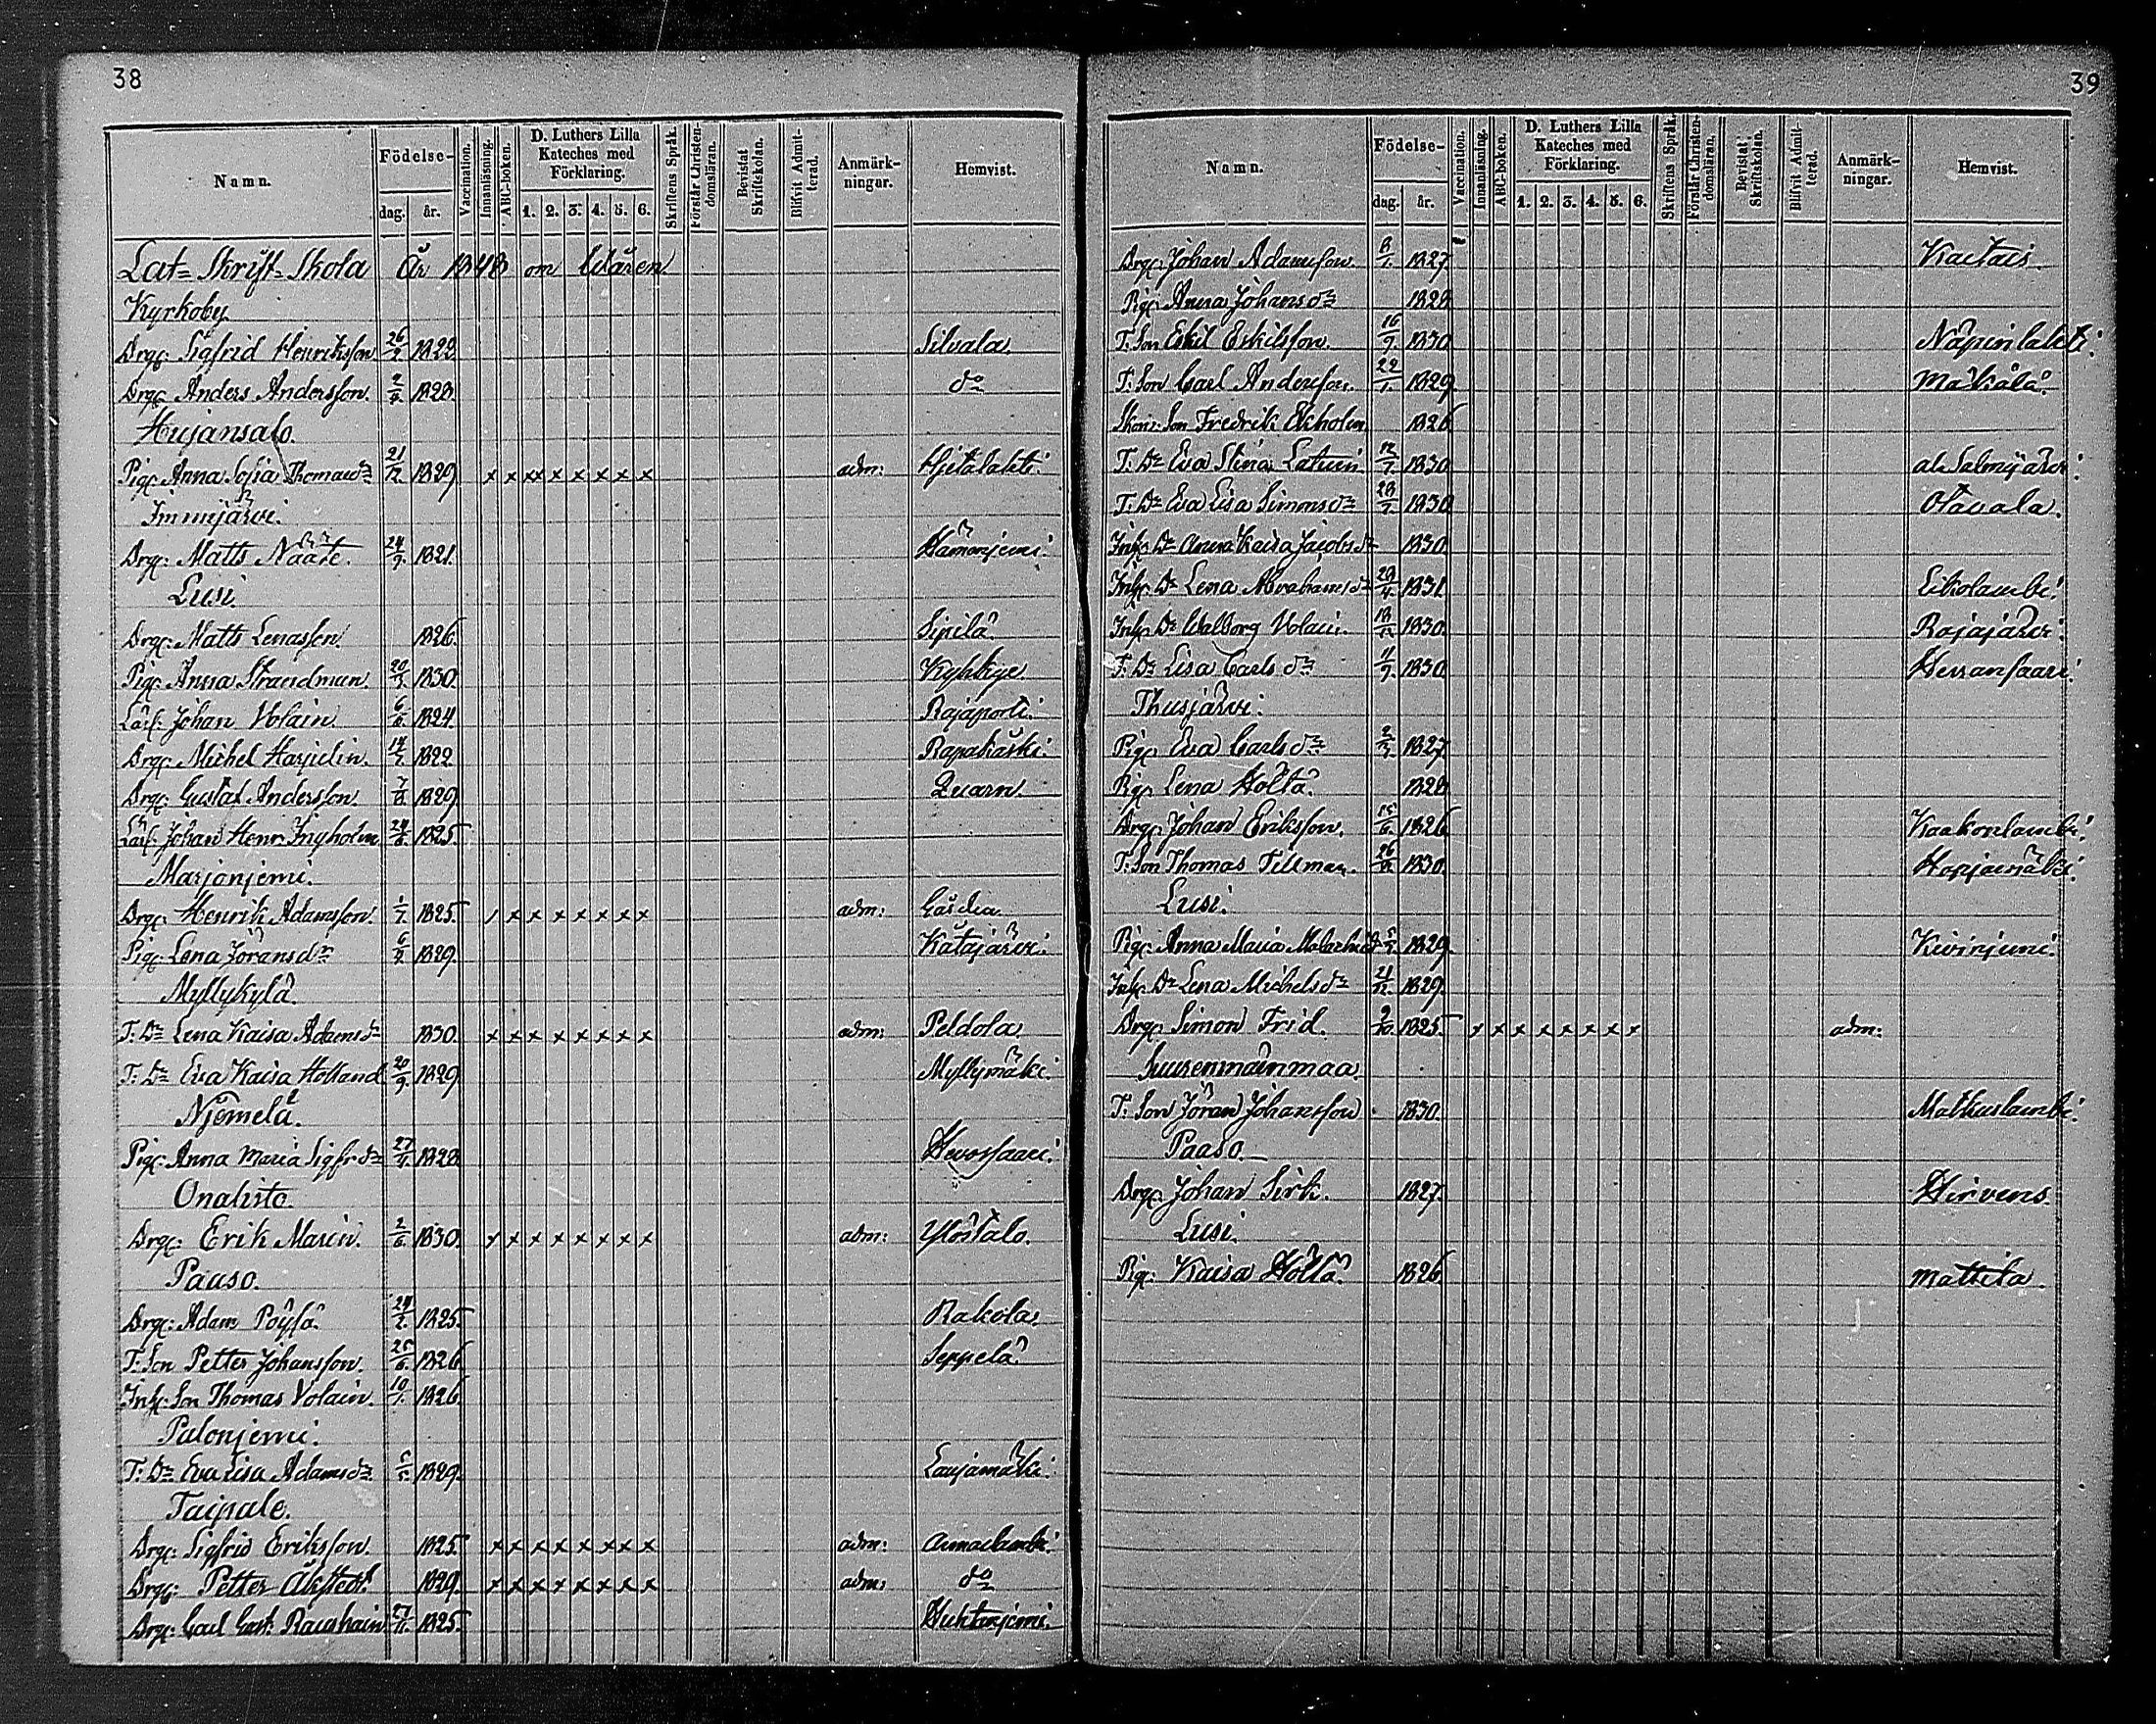 38
Namn. Födelse- dag. år. Vaccination. Innanläsning. ABC-boken. D. Luthers Lilla Kateches med Förklaring. 1. 2. 3. 4. 5. 6. Skriftens Språk. Förstår Christendomsläran. Bevistat Skriftskolan. Blifvit Admitterad. Anmärkningar. Hemvist.
Lat-Skrift-Skola År 1848 om Wåren
Kyrkoby
Drge: Sigfrid Henriksson 26/2 1828 Silvala.
Drge Anders Andersson. 1828. do
Hujansalo.
Pige Anna Sofia Thomasdr 21/12. 1829 x x xx x x x x x adm: Hietalahti.
Immijärvi.
Drge: Matts Nääte. 24/9. 1821. Hämönjemi.
Lusi.
Drge: Matts Lenasson. 1826. Sipilä.
Pige: Anna Strandman. 1830. Kyhkye.
Lärl: Johan Volain. 6/6. 1824. Rajaportti.
Drge Michel Harjulin. 1822. Rapakoski.
Drge: Gustaf Andersson. 7/8. 1829 Quarn.
Lärl: Johan Henr. Ingholm 1825.
Marjonjemi.
Drge: Henrik Adamsson. 1/7. 1825. x x x x x x x x adm:
Pige: Lena Jöransdr 1829. Katajärvi.
Myllykylä.
T: Dr Lena Kaisa Adamsdr 1830. x x x x x x x x adm: Peldola.
T: Dr Eva Kaisa Holland 20/9 1829. Myllymäki.
Njemelä.
Pige: Anna Maria Sigfrdr 27/11. 1828. Hevossaari.
Onalisto.
Drge: Erik Marin. 2/6. 1830. x x x x x x x x adm: Ylöstalo.
Paaso.
Drge: Adam Pöysä. 1825. Rakola.
T: Son Petter Johansson. 25/6. 1826. Seppelä.
Inh: Son Thomas Volain. 10/1. 1826
Pulonjemi.
T: Dr Eva Lisa Adamsdr. 1829. Laujamäki.
Taipale.
Drge: Sigfrid Eriksson. 1825. x x x x x x x x adm:
Drge: Petter 1829 x x x x x x x x adm: do
Drge: Carl Gust. 27/11. 1825. Huhtanjemi.
39
Namn. Födelse- dag. år. Vaccination. Innanläsning. ABC-boken. D. Luthers Lilla Kateches med Förklaring. 1. 2. 3. 4. 5. 6. Skriftens Språk. Förstår Christendomsläran. Bevistat Skriftskolan. Blifvit Admitterad. Anmärkningar. Hemvist.
Drge: Johan Adamsson. 8/1. 1827. Kaitais.
Pige Anna Johansdr 1828
T: Son Eskil Eskilsson. 1830 Näpinlahti.
T: Son Carl Andersson. 22/1. 1829. Mäkälä.
Son Fredrik Ekholm 1826
T: Dr Eva Stina Latuin 1830. al. Salmijärvi.
T: Dr Eva Lisa Simonsdr 1830 Otavala.
Inh: Dr Anna Kaisa Jacobsdr 1830.
Inh: Dr Lena Abrahamsdr 1831.
Inh: Dr Walborg Volain. 18/12. 1830. Rajajärvi.
T: Dr Lisa Carlsdr 1830. Herransaari.
Thusjärvi.
Pige Eva Carlsdr 1827.
Pige Lena Höltä. 1828
Drge: Johan Eriksson. 15/6. 1826 Kaakonlambi.
T: Son Thomas Tillman. 1830.
Lusi.
Pige: Anna Maria 1829. Kivinjemi.
Inh: Dr Lena Michelsdr 21/12. 1829.
Drge: Simon Frid. 9/10. 1825. x x x x x x x x adm:
Suurenmäinmaa.
T: Son Jöran Johansson. 1830. Matkuslambi.
Paaso.
Drge: Johan Sirk. 1827. Hirvens.
Lusi.
Pige: Kaisa Höltä. 1826 Mattila.